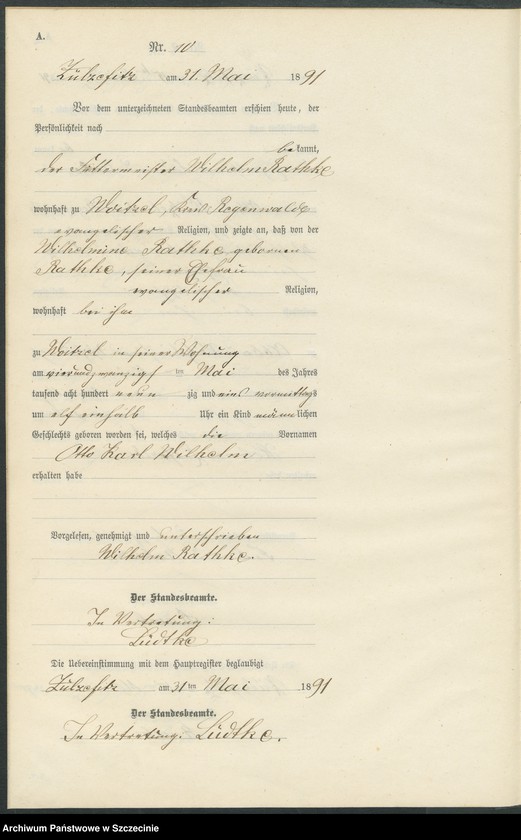 A.
Nr. 10
Zülzefitz am 31. Mai 1891
Vor dem unterzeichneten Standesbeamten erschien heute, der
Persönlichkeit nach
bekannt,
der Futtermeister Wilhelm Rathke
wohnhaft zu Woitzel, Kreis Regenwalde
evangelischer Religion, und zeigte an, daß von der
Wilhelmine Rathke geborenen
Rathke, seiner Ehefrau
evangelischer Religion,
wohnhaft bei ihm
zu Woitzel in seiner Wohnung
am vierundzwanzigs ten Mai des Jahres
tausend acht hundert neun zig und eins vormittags
um elf einhalb Uhr ein Kind männlichen
Geschlechts geboren worden sei, welches die Vornamen
Otto Karl Wilhelm
erhalten habe
Vorgelesen, genehmigt und unterschrieben
Wilhelm Rathke.
Der Standesbeamte.
In Vertretung:
Lüdtke
Die Uebereinstimmung mit dem Hauptregister beglaubigt
Zülzefitz am 31ten Mai 1891
Der Standesbeamte.
In Vertretung: Lüdtke.
Archiwum Państwowe w Szczecinie